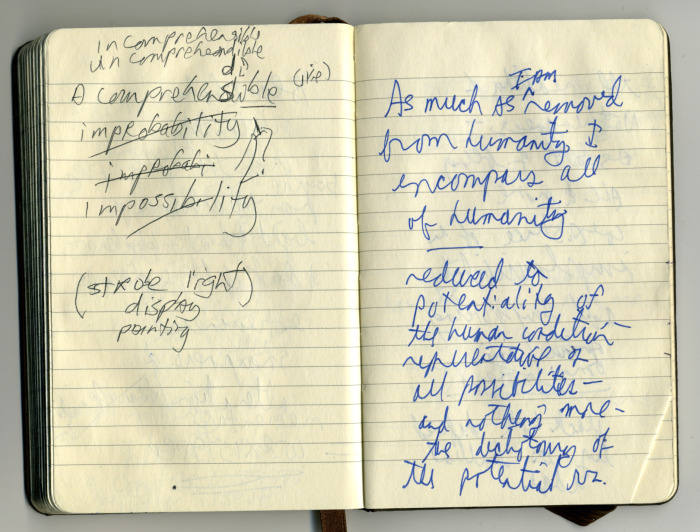 incomprehensible
uncomprehendible
di
A comprehensible (ive)
improbability
improbabi
impossibility
?
(strobe light)
display
painting
I AM
As much as removed
from humanity I
encompass all
of humanity.
reduced to
potentiality of
the human condition –
representative of
all possibilities –
and nothing more –
the dichotomy of
the potential vs.